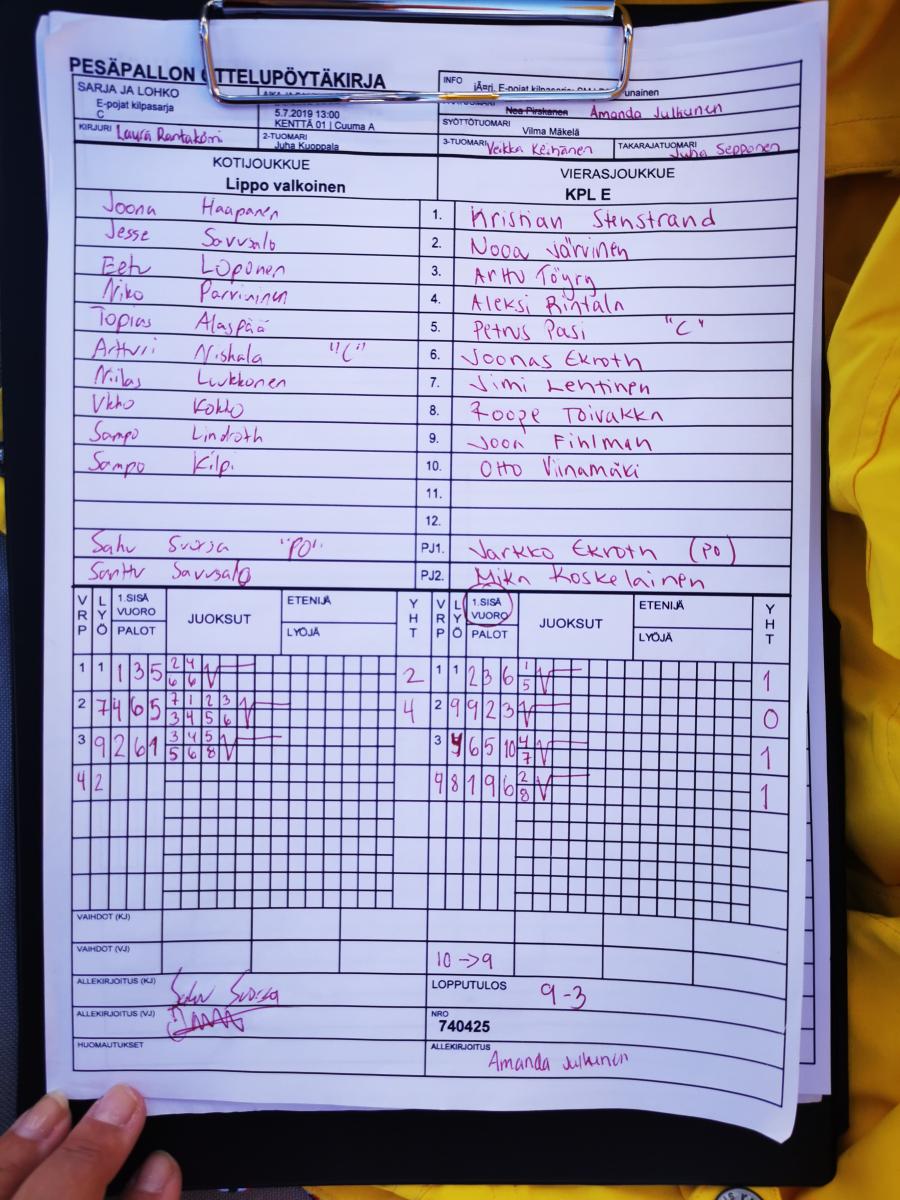 PESÄPALLON OTTELUPÖYTÄKIRJA
SARJA JA LOHKO
E-pojat kilpasarja
C
5.7.2019 13:00
KENTTÄ 01 | Cuuma A
INFO
E-pojat kilpasarja
unainen
Nea Pirskanen Amanda Julkunen
SYÖTTÖTUOMARI
Vilma Mäkelä
KIRJURI Laura Rantakömi
2-TUOMARI
Juha Kuoppala
3-TUOMARI Veikka Keinänen
TAKARAJATUOMARI
Juha Sepponen
KOTIJOUKKUE
Lippo valkoinen
VIERASJOUKKUE
KPL E
Joona Haapanen 1. Kristian Stenstrand
Jesse Savusalo 2. Nooa Järvinen
Eetu Loponen 3. Arttu Töyry
Niko Parviainen 4. Aleksi Rintala
Topias Alaspää 5. Petrus Pasi "C"
Artturi Niskala "C" 6. Joonas Ekroth
Niilas Luukkonen 7. Jimi Lehtinen
Ukko Kokko 8. Roope Toivakka
Sampo Lindroth 9. Joon Fihlman
Sampo Kilpi 10. Otto Viinamäki
11.
12.
Saku Suorsa "PO" PJ1. Jarkko Ekroth (PO)
Santtu Savusalo PJ2. Mika Koskelainen
VRP LYÖ 1.SISÄ VUORO PALOT JUOKSUT ETENIJÄ LYÖJÄ YHT VRP LYÖ 1.SISÄ VUORO PALOT JUOKSUT ETENIJÄ LYÖJÄ YHT
1 1 1 3 5 2 4 6 6 2 1 1 2 3 6 1 5 1
2 7 4 6 5 7 1 2 3 3 4 5 6 4 2 9 9 2 3 0
3 9 2 6 1 3 4 5 5 6 8 3 4 6 5 10 4 7 1
4 2 4 8 1 9 6 2 8 1
VAIHDOT (KJ)
VAIHDOT (VJ) 10 → 9
ALLEKIRJOITUS (KJ) Saku Suorsa
LOPPUTULOS 9-3
ALLEKIRJOITUS (VJ)
NRO
740425
HUOMAUTUKSET
ALLEKIRJOITUS
Amanda Julkunen